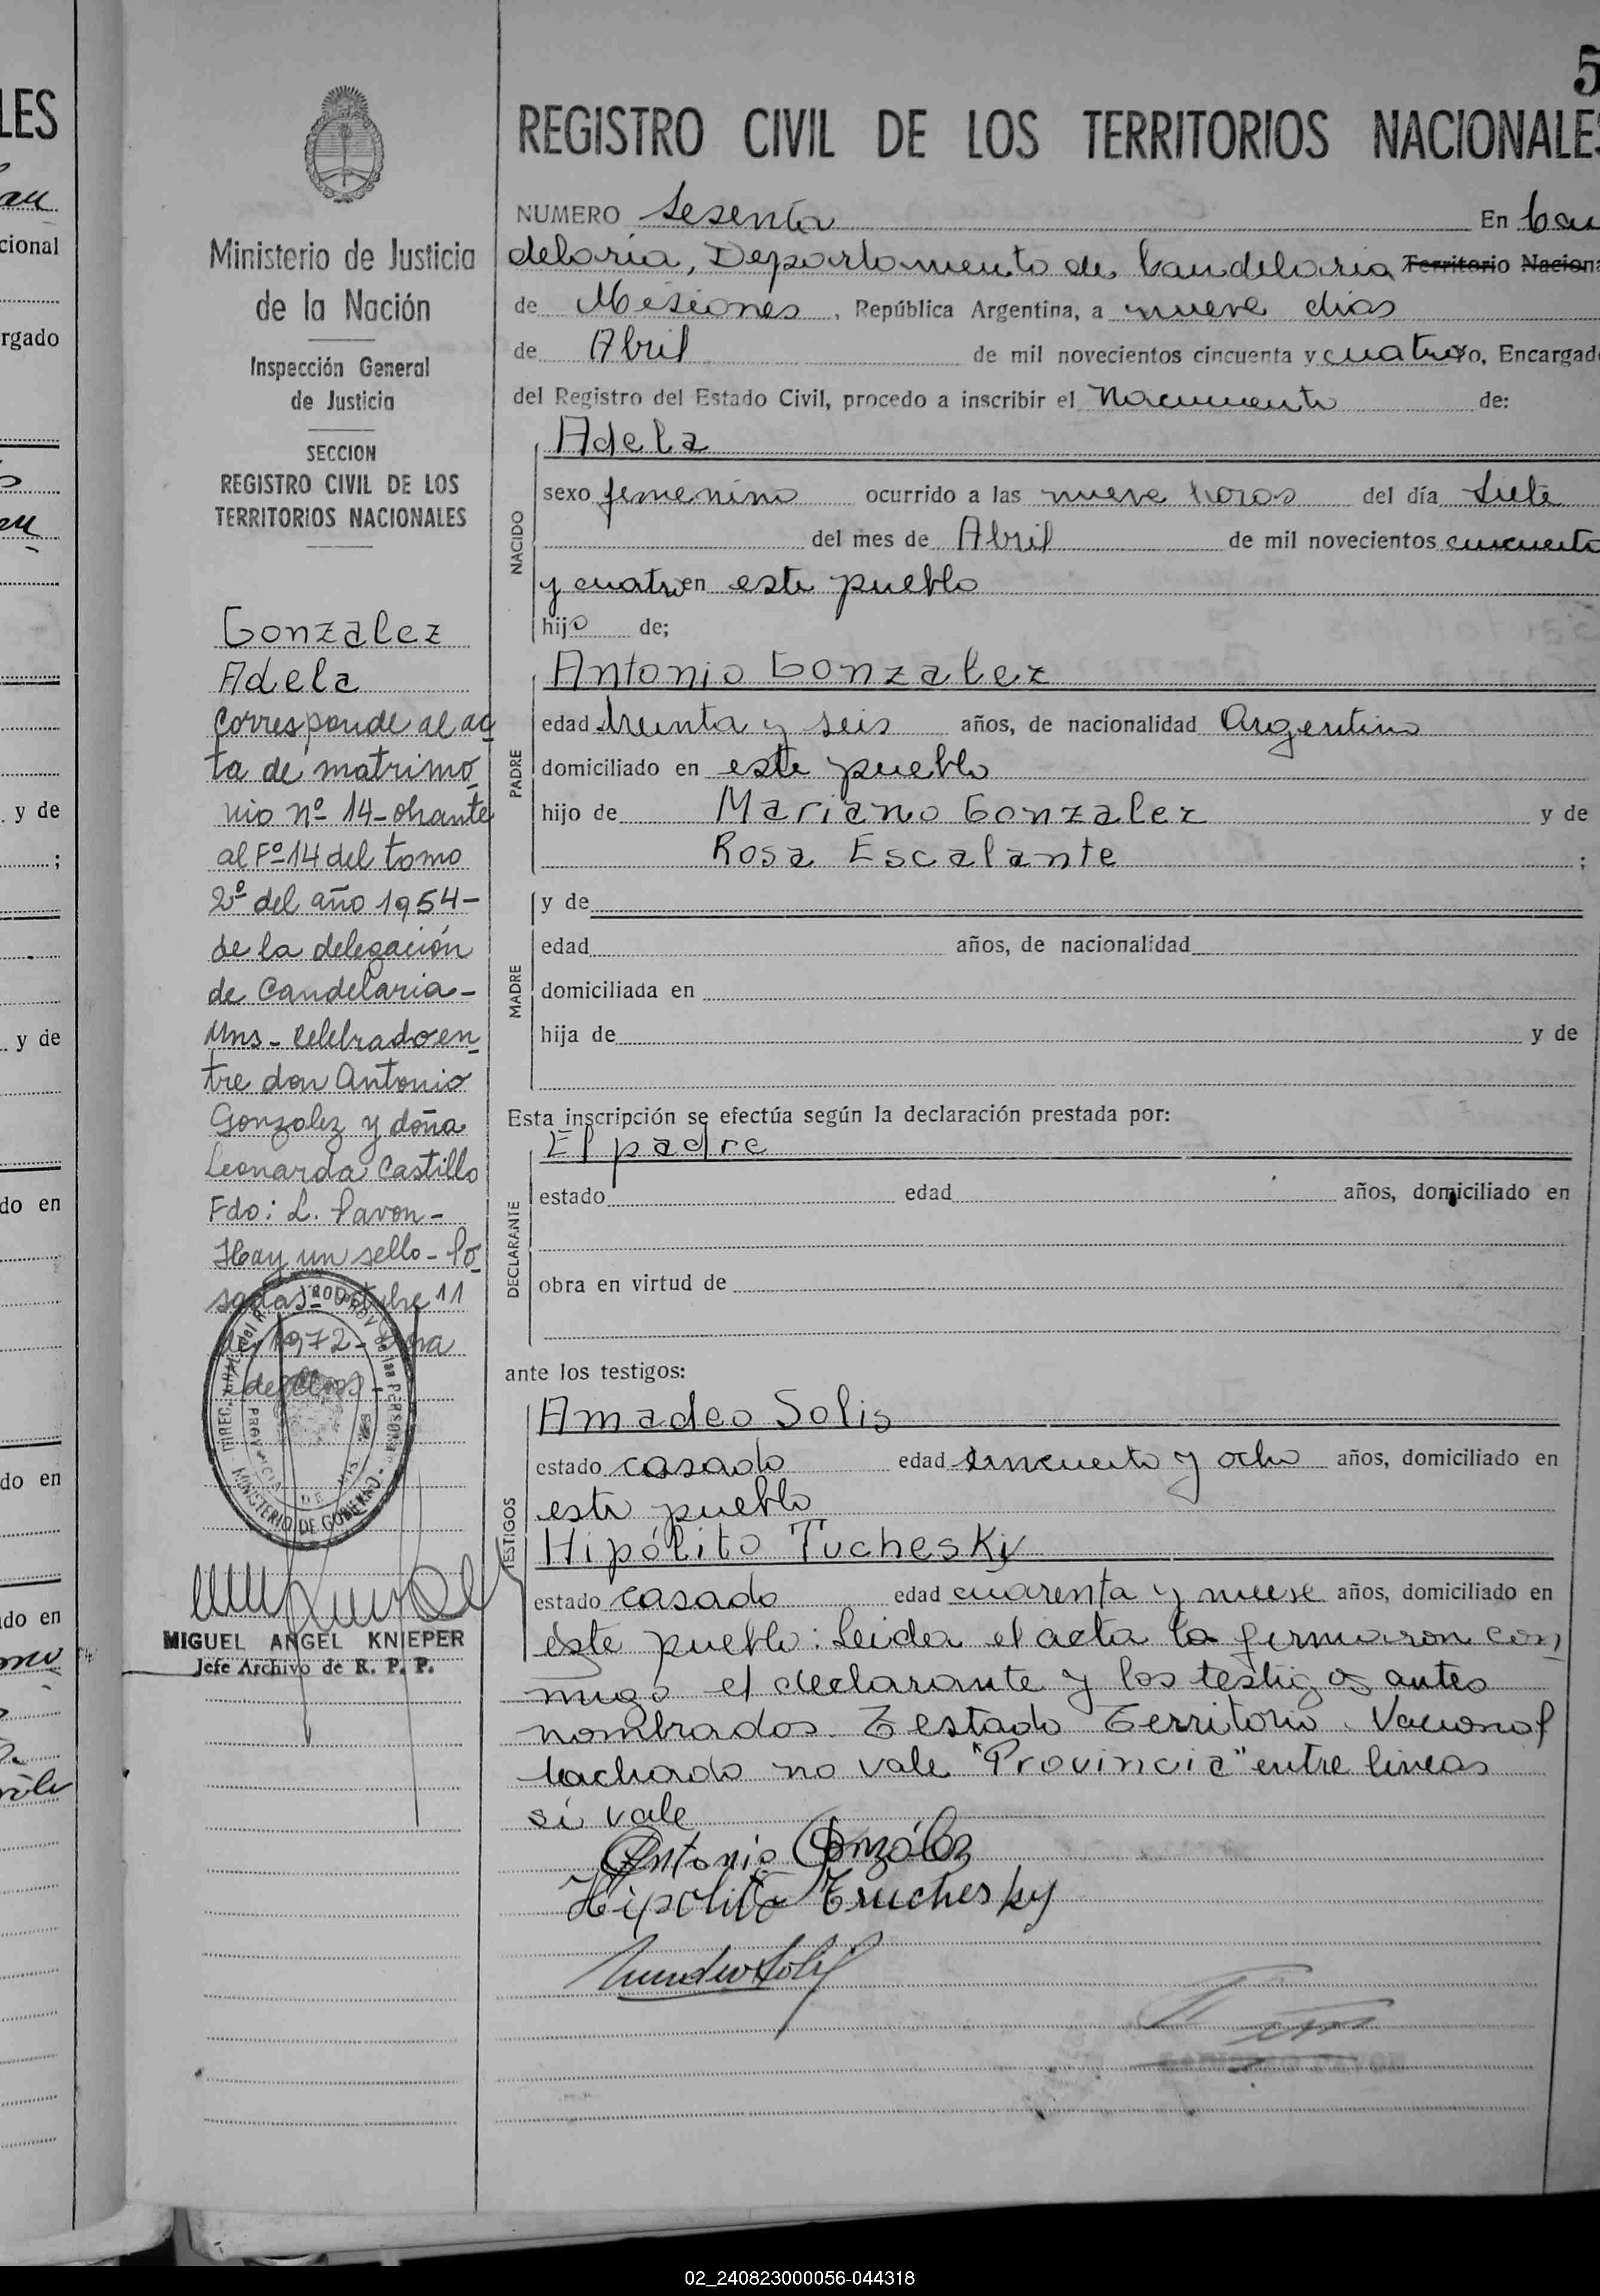 LES
au
cional
rgado
y de
;
y de
do en
do en
do en
5
REGISTRO CIVIL DE LOS TERRITORIOS NACIONALES
Ministerio de Justicia
de la Nación
Inspección General
de Justicia
SECCION
REGISTRO CIVIL DE LOS
TERRITORIOS NACIONALES
Gonzalez
Adela
Corresponde al ac
ta de matrimo
nio nº 14-obrante
al Fº 14 del tomo
2º del año 1954-
de la delegación
de Candelaria-
Mns- Celebrado en
tre don Antonio
Gonzalez y doña
Leonarda Castillo
Fdo: L. Pavon-
Hay un sello- Po
sadas- octubre 11
de 1972-
MINISTERIO DE GOBIERNO
MIGUEL ANGEL KNIEPER
Jefe Archivo de R. P. P.
NUMERO Sesenta En Can
delaria, Departamento de Candelaria Territorio Naciona
de Misiones, República Argentina, a nueve dias
de Abril de mil novecientos cincuenta y cuatro yo, Encargado
del Registro del Estado Civil, procedo a inscribir el Nacimiento de:
NACIDO
Adela
sexo femenino ocurrido a las nueve horas del día siete
del mes de Abril de mil novecientos cincuenta
y cuatro en este pueblo
hijo de;
PADRE
Antonio Gonzalez
edad treinta y seis años, de nacionalidad Argentino
domiciliado en este pueblo
hijo de Mariano Gonzalez y de
Rosa Escalante ;
MADRE
y de
edad años, de nacionalidad
domiciliada en
hija de y de
Esta inscripción se efectúa según la declaración prestada por:
DECLARANTE
El padre
estado edad años, domiciliado en
obra en virtud de
ante los testigos:
TESTIGOS
Amadeo Solis
estado casado edad cincuenta y ocho años, domiciliado en
este pueblo
Hipólito Tucheski
estado casado edad cuarenta y nueve años, domiciliado en
este pueblo: Leida el acta la firmaron con
migo el declarante y los testigos antes
nombrados. Testado Territorio Nacional
tachado no vale "Provincia" entre lineas
si vale
Antonio González
Hipolito Truchesky
Amadeo Solis
02_240823000056-044318